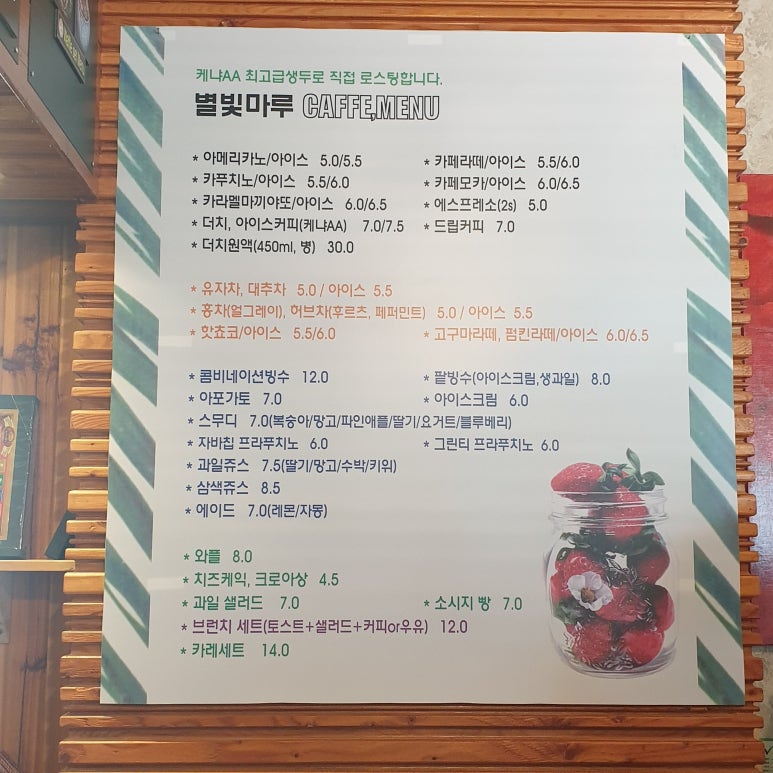 케냐AA 최고급생두로 직접 로스팅합니다.
별빛마루 CAFFE,MENU
* 아메리카노/아이스 5.0/5.5 * 카페라떼/아이스 5.5/6.0
* 카푸치노/아이스 5.5/6.0 * 카페모카/아이스 6.0/6.5
* 카라멜마끼야또/아이스 6.0/6.5 * 에스프레소(2s) 5.0
* 더치, 아이스커피(케냐AA) 7.0/7.5 * 드립커피 7.0
* 더치원액(450ml, 병) 30.0
* 유자차, 대추차 5.0 / 아이스 5.5
* 홍차(얼그레이), 허브차(후르츠, 페퍼민트) 5.0 / 아이스 5.5
* 핫쵸코/아이스 5.5/6.0 * 고구마라떼, 펌킨라떼/아이스 6.0/6.5
* 콤비네이션빙수 12.0 * 팥빙수(아이스크림,생과일) 8.0
* 아포가토 7.0 * 아이스크림 6.0
* 스무디 7.0(복숭아/망고/파인애플/딸기/요거트/블루베리)
* 자바칩 프라푸치노 6.0 * 그린티 프라푸치노 6.0
* 과일쥬스 7.5(딸기/망고/수박/키위)
* 삼색쥬스 8.5
* 에이드 7.0(레몬/자몽)
* 와플 8.0
* 치즈케익, 크로아상 4.5
* 과일 샐러드 7.0 * 소시지 빵 7.0
* 브런치 세트(토스트+샐러드+커피or우유) 12.0
* 카레세트 14.0